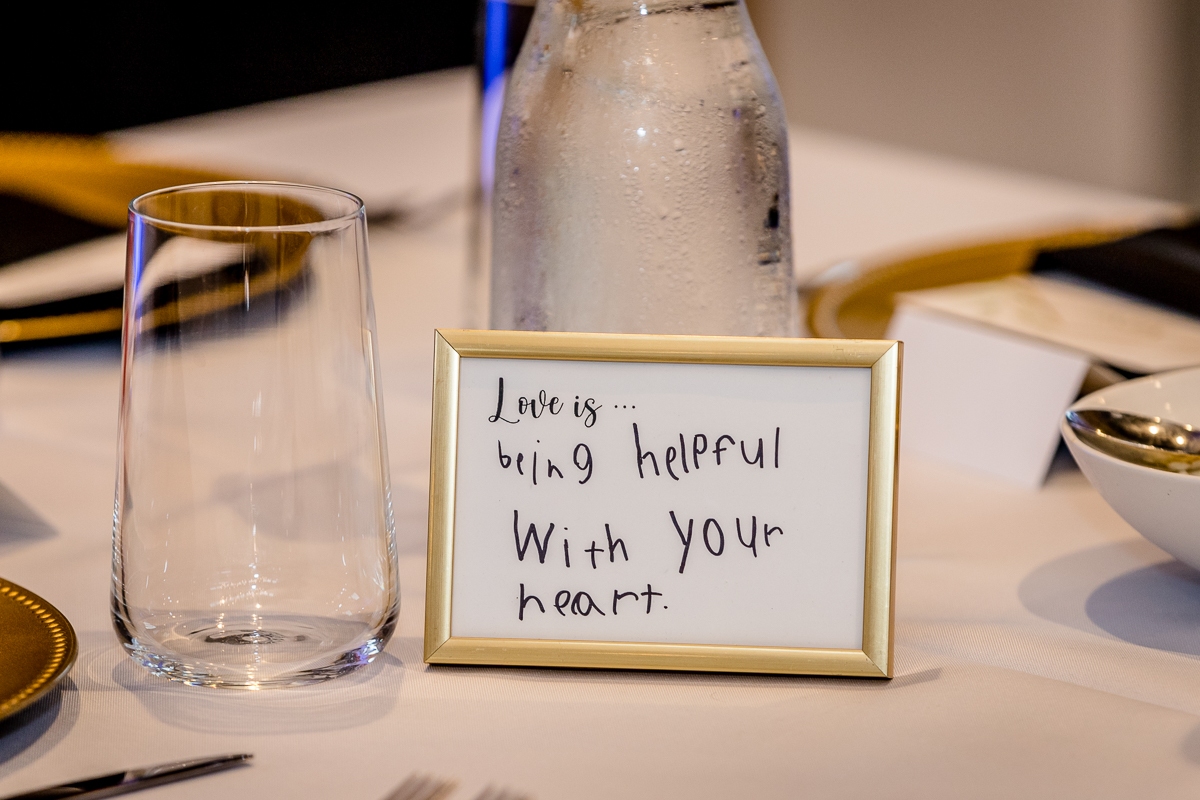 Love is ...
being helpful
With your
heart.